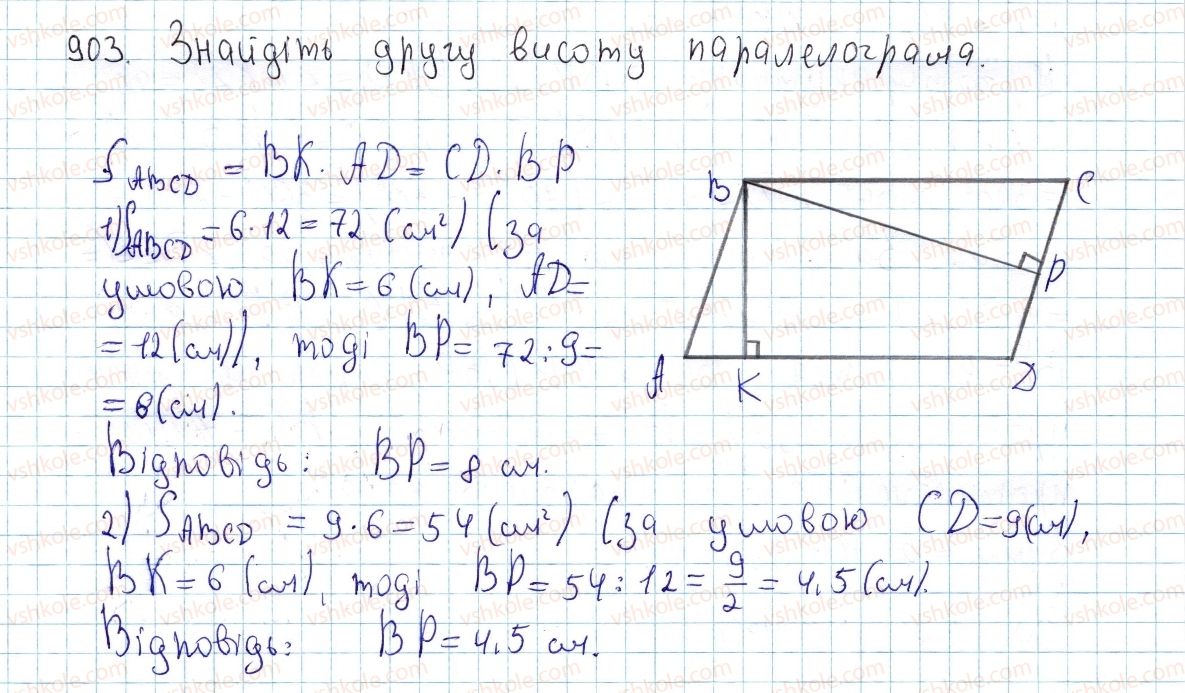 903. Знайдіть другу висоту паралелограма.
S ABCD = BK · AD = CD · BP
1) S ABCD = 6 · 12 = 72 (см²) (за
умовою BK = 6 (см), AD =
= 12 (см)), тоді BP = 72 : 9 =
= 8 (см).
Відповідь: BP = 8 см.
2) S ABCD = 9 · 6 = 54 (см²) (за умовою CD = 9 (см),
BK = 6 (см), тоді BP = 54 : 12 = 9/2 = 4,5 (см).
Відповідь: BP = 4,5 см.
B
C
P
A
K
D
vshkole.com